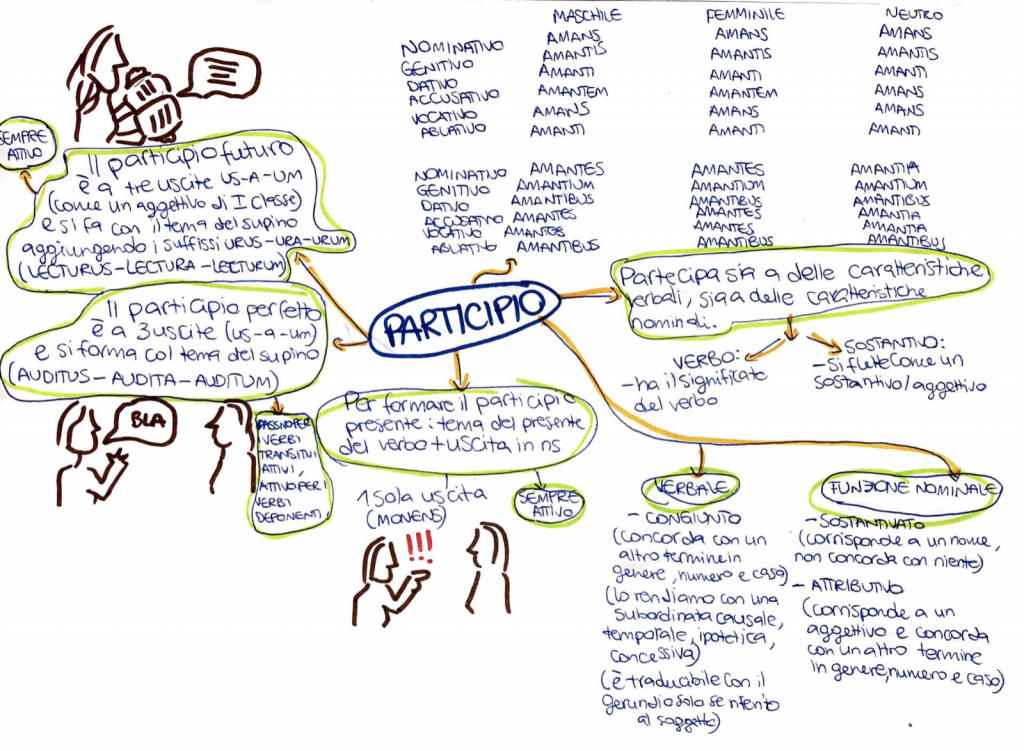 MASCHILE FEMMINILE NEUTRO
NOMINATIVO AMANS AMANS AMANS
GENITIVO AMANTIS AMANTIS AMANTIS
DATIVO AMANTI AMANTI AMANTI
ACCUSATIVO AMANTEM AMANTEM AMANS
VOCATIVO AMANS AMANS AMANS
ABLATIVO AMANTI AMANTI AMANTI
NOMINATIVO AMANTES AMANTES AMANTIA
GENITIVO AMANTIUM AMANTIUM AMANTIUM
DATIVO AMANTIBUS AMANTIBUS AMANTIBUS
ACCUSATIVO AMANTES AMANTES AMANTIA
VOCATIVO AMANTES AMANTES AMANTIA
ABLATIVO AMANTIBUS AMANTIBUS AMANTIBUS
SEMPRE
ATTIVO
Il participio futuro
è a tre uscite US-A-UM
(come un aggettivo di I classe)
e si fa con il tema del supino
aggiungendo i suffissi URUS-URA-URUM
(LECTURUS-LECTURA-LECTURUM)
PARTICIPIO
Partecipa sia a delle caratteristiche
verbali, sia a delle caratteristiche
nominali.
VERBO:
-ha il significato
del verbo
SOSTANTIVO:
-si flette come un
sostantivo/aggettivo
Il participio perfetto
è a 3 uscite (us-a-um)
e si forma col tema del supino
(AUDITUS-AUDITA-AUDITUM)
BLA
PASSIVO PER
VERBI
TRANSITIVI
ATTIVI,
ATTIVO PER I
VERBI
DEPONENTI,
Per formare il participio
presente: tema del presente
del verbo + uscita in ns
1 sola uscita
(MONENS)
SEMPRE
ATTIVO
!!!
VERBALE
- CONGIUNTO
(concorda con un
altro termine in
genere, numero e caso)
(lo rendiamo con una
subordinata causale,
temporale, ipotetica,
concessiva)
(è traducibile con il
gerundio solo se riferito
al soggetto)
FUNZIONE NOMINALE
- SOSTANTIVATO
(corrisponde a un nome,
non concorda con niente)
- ATTRIBUTIVO
(corrisponde a un
aggettivo e concorda
con un altro termine
in genere, numero e caso)